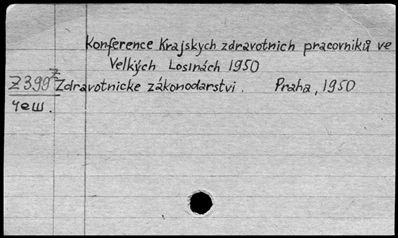 Konference Krajskych zdravotnich pracovniků ve
Velkých Losinách 1950
Z399 z Zdravotnicke zákonodarstvi. Praha, 1950
чеш.